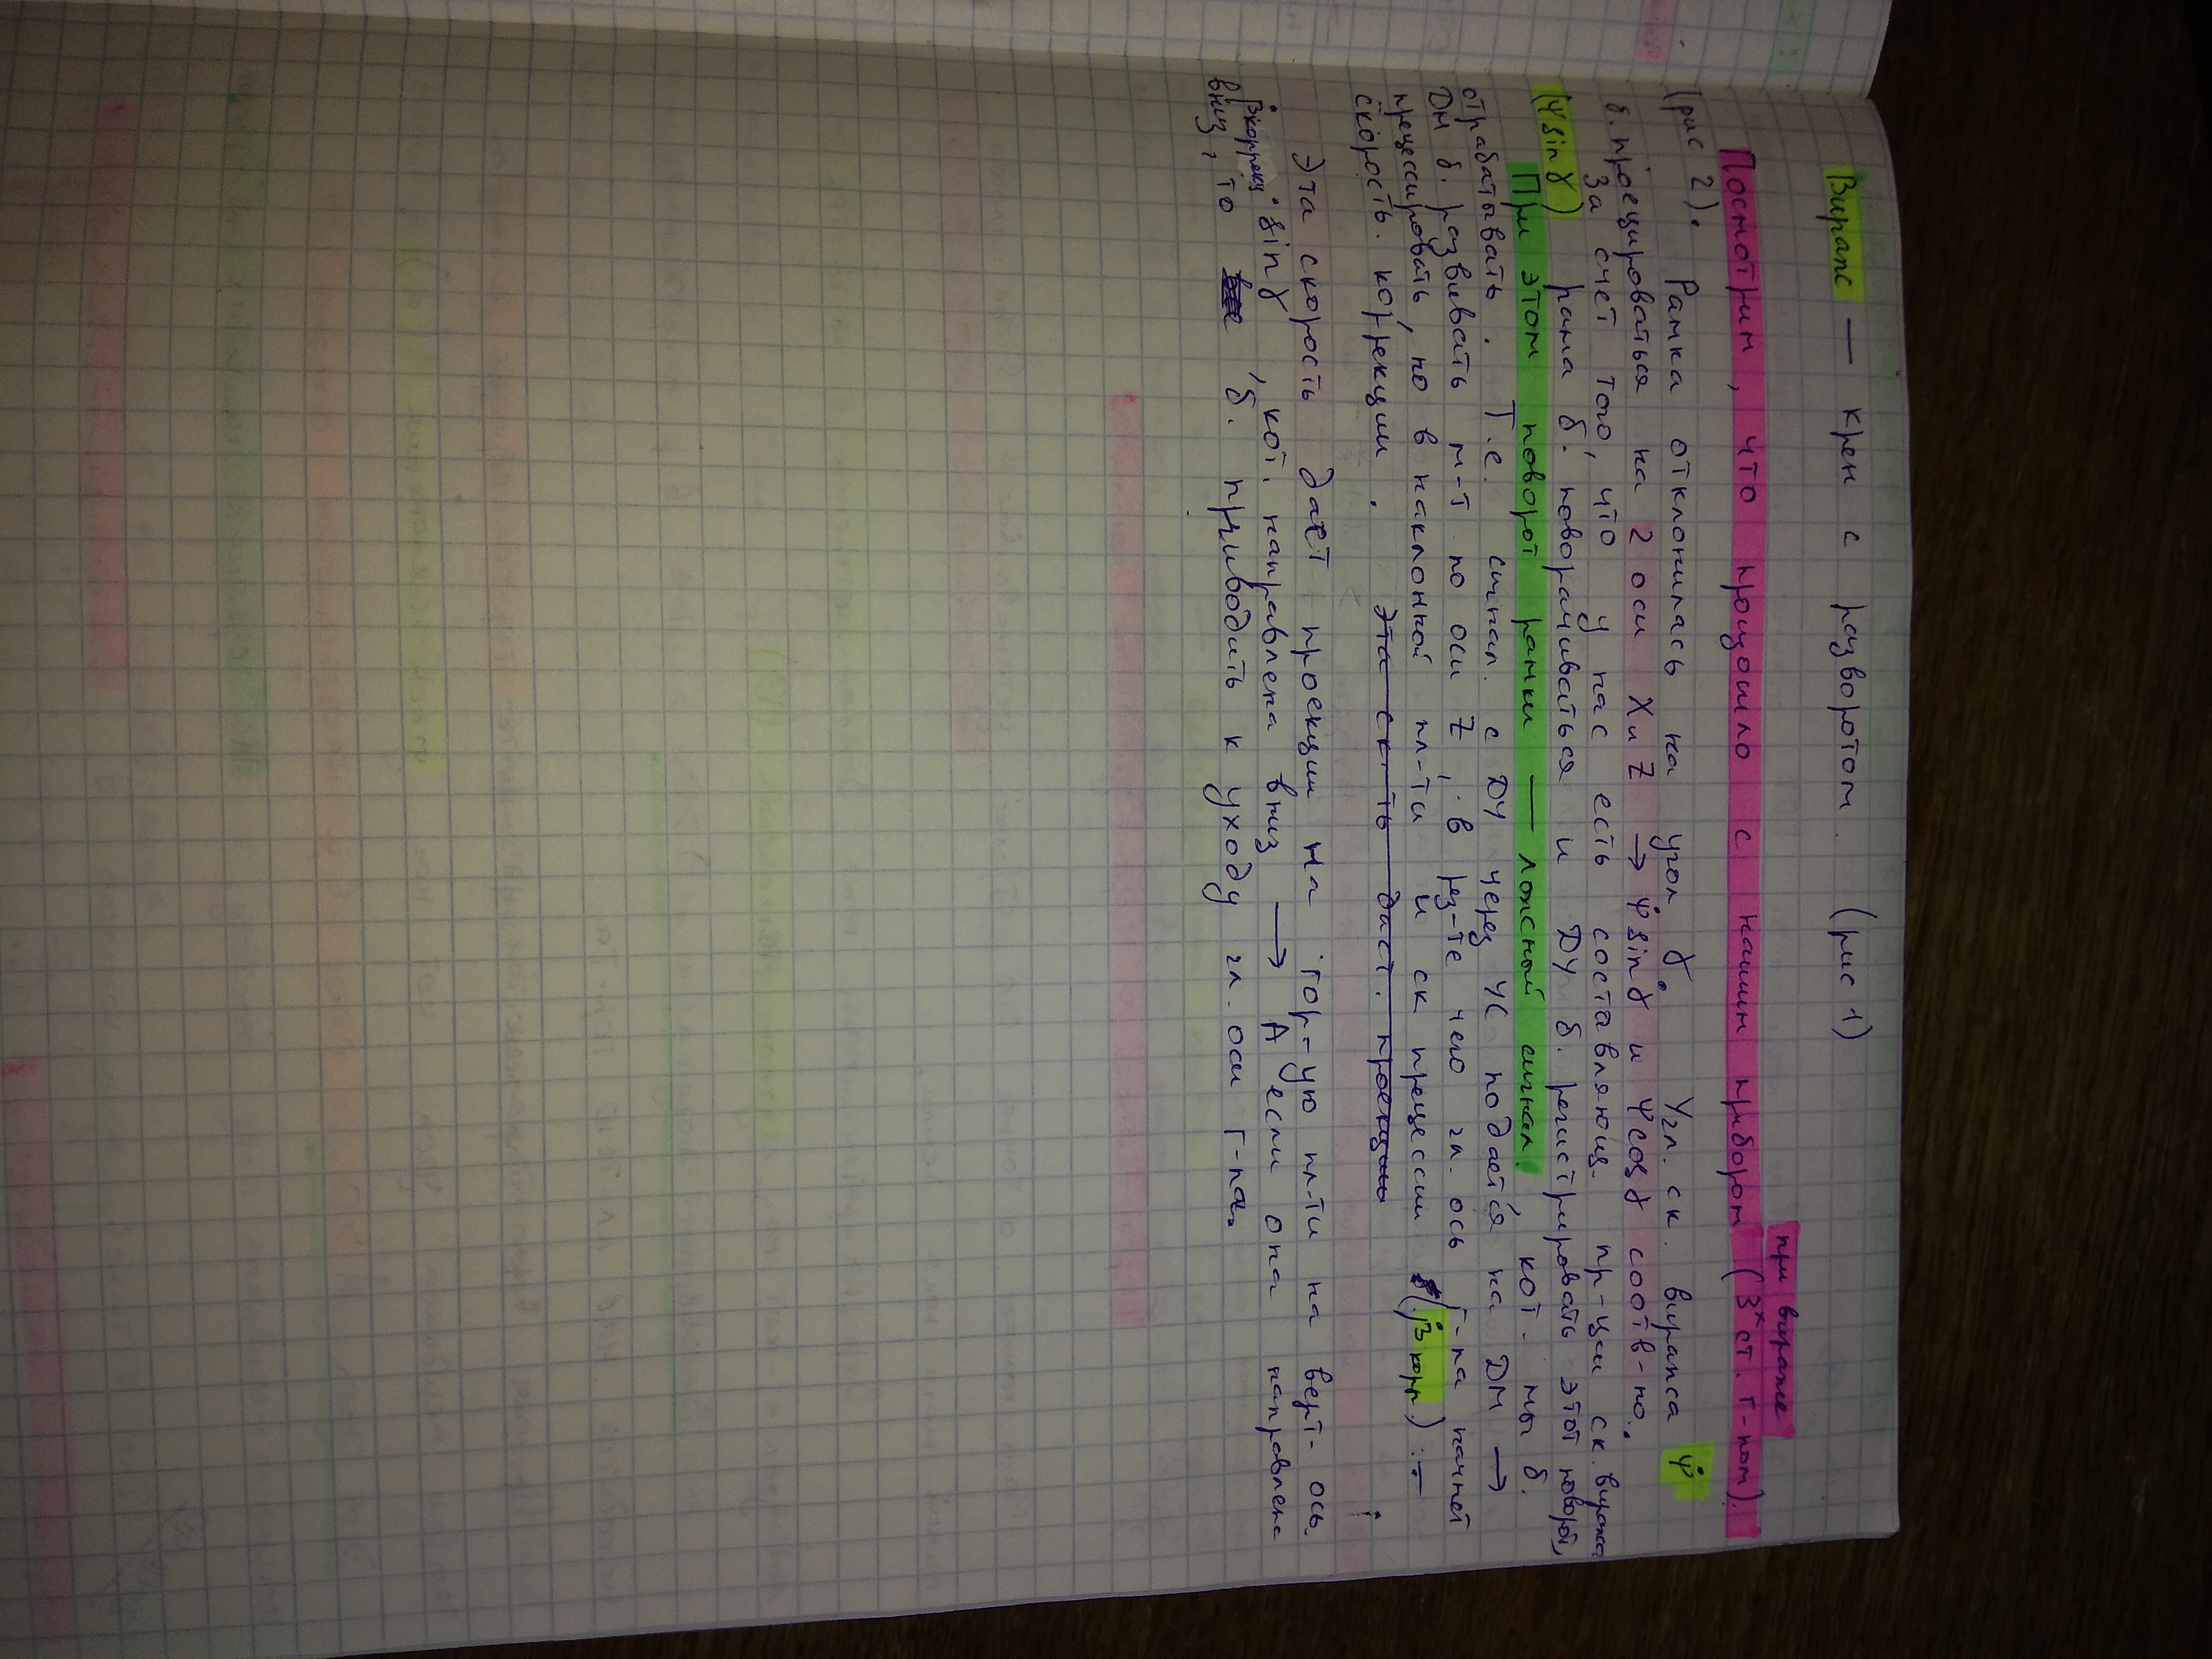 Вираж — крен с разворотом. (рис 1)
при вираже
Посмотрим, что прощошло с нашим прибором (3х ст. г-пом).
(рис 2). Рамка отклонилась на угол γ Угл. ск. виража ψ̇
б. проецироваться на 2 оси X и Z → ψ̇ sin γ и ψ̇ cos γ соотв-но.
За счет того, что у нас есть составляющ. пр-ции ск. виража
(ψ̇ sin γ) рама б. поворачиваться и ДУ б. регистрировать этот поворот,
При этом поворот рамки — ложный сигнал, кот. мы б.
отрабатывать. Т.е. сигнал с ДУ через УС подаётся на ДМ →
ДМ б. развивать м-т по оси Z, в рез-те чего гл. ось г-па начнет
прецессировать, но в наклонной пл-ти и ск прецессии (β̇ корр.) :=
скорость коррекции. Эта ск-ть даст. проекцию
Эта скорость даёт проекции на гор-ую пл-ти на верт- ось.
β̇ коррекц · sin γ, кот. направлена вниз → А если она направлена
вниз, то б. приводить к уходу гл. оси г-па.